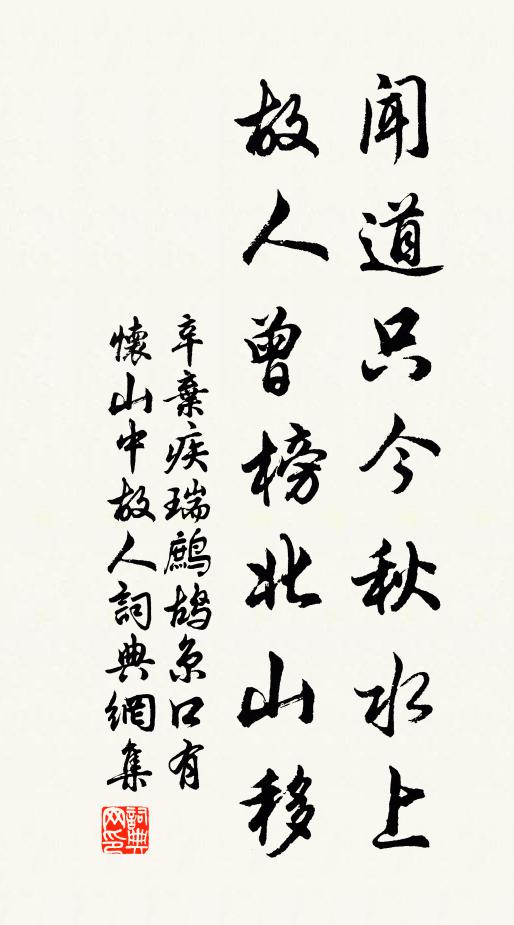 闻道只今秋水上
故人曾榜北山移
辛棄疾瑞鹧鸪京口有
懷山中故人詞典網集
詞典
网印